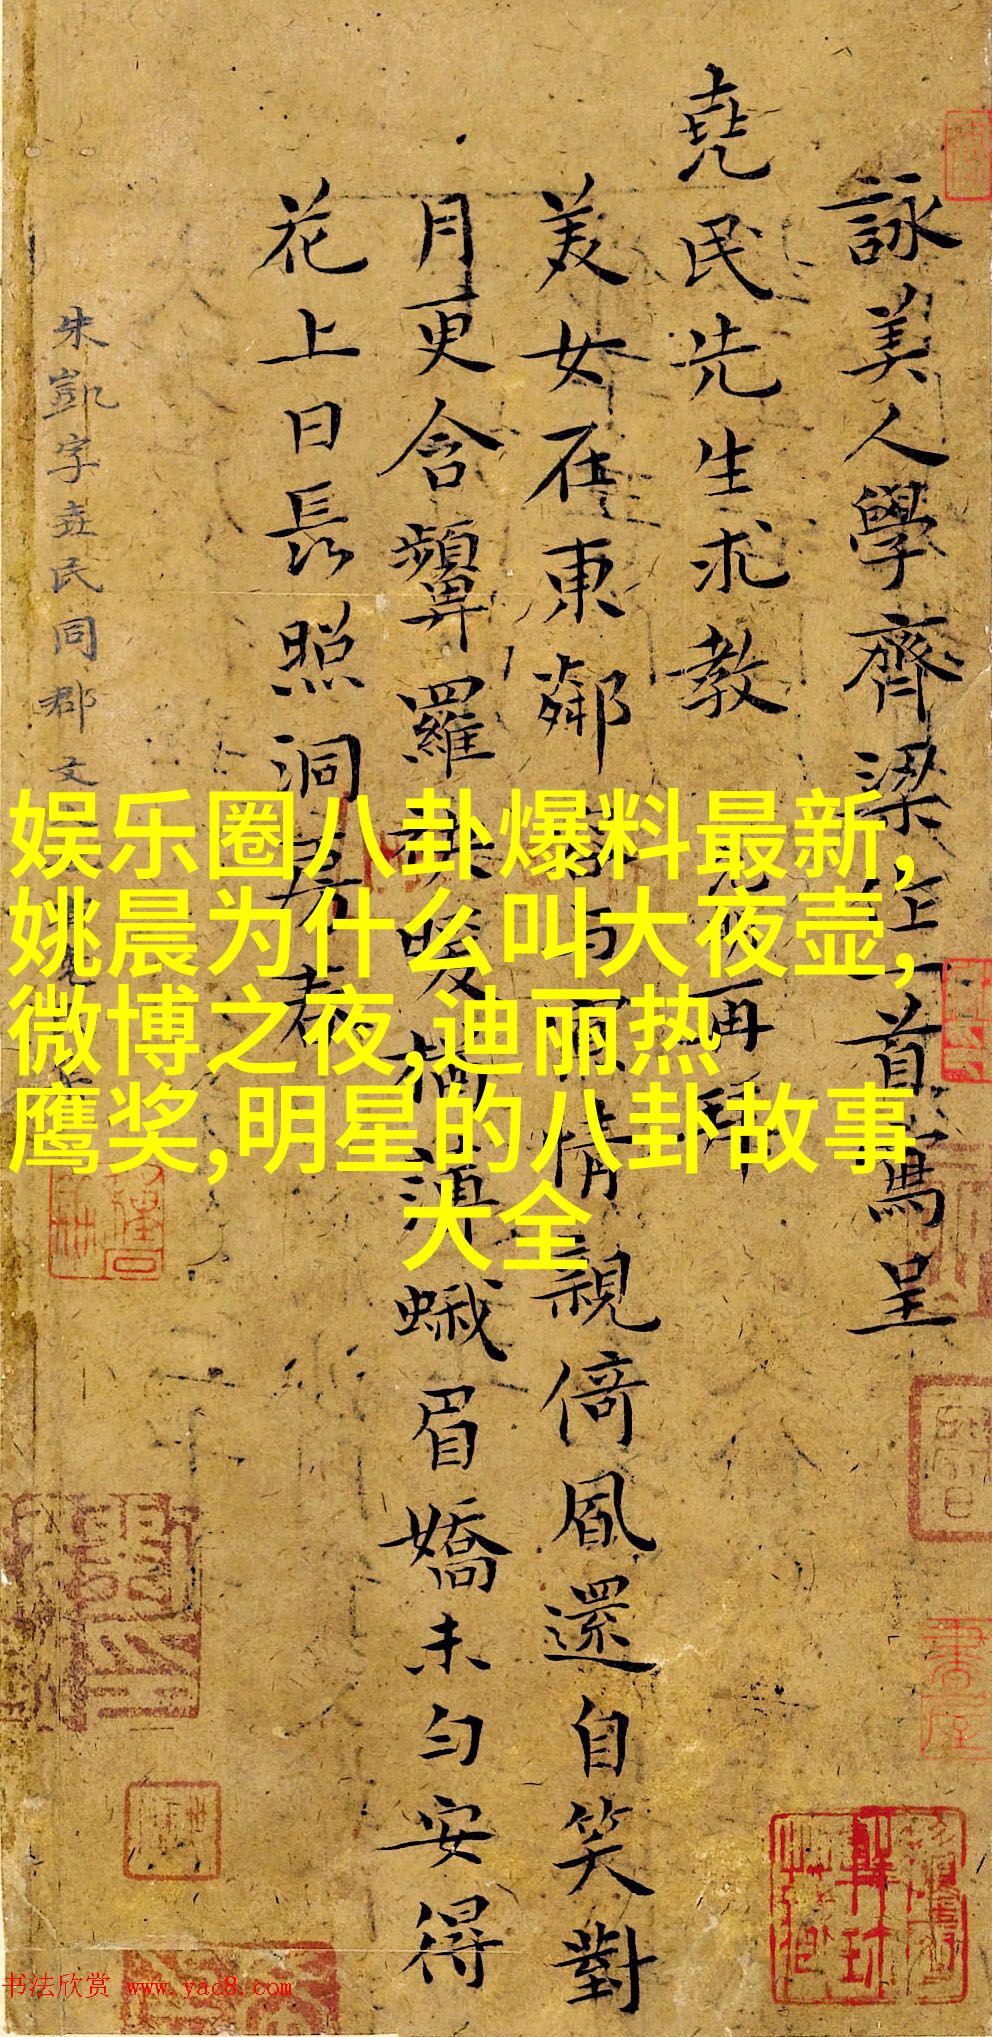 詠美人學齊梁作一首寫呈
堯民先生求教 再拜
美女在東鄰 情親倚風還自笑對
月更含顰羅 暖 蛾眉嬌未勻安得
花上日長照洞房春
朱凱字堯民同郡文
娱乐圈八卦爆料最新,
姚晨为什么叫大夜壶,
微博之夜,迪丽热
鹰奖,明星的八卦故事
大全
书法欣赏 www.yac8.com